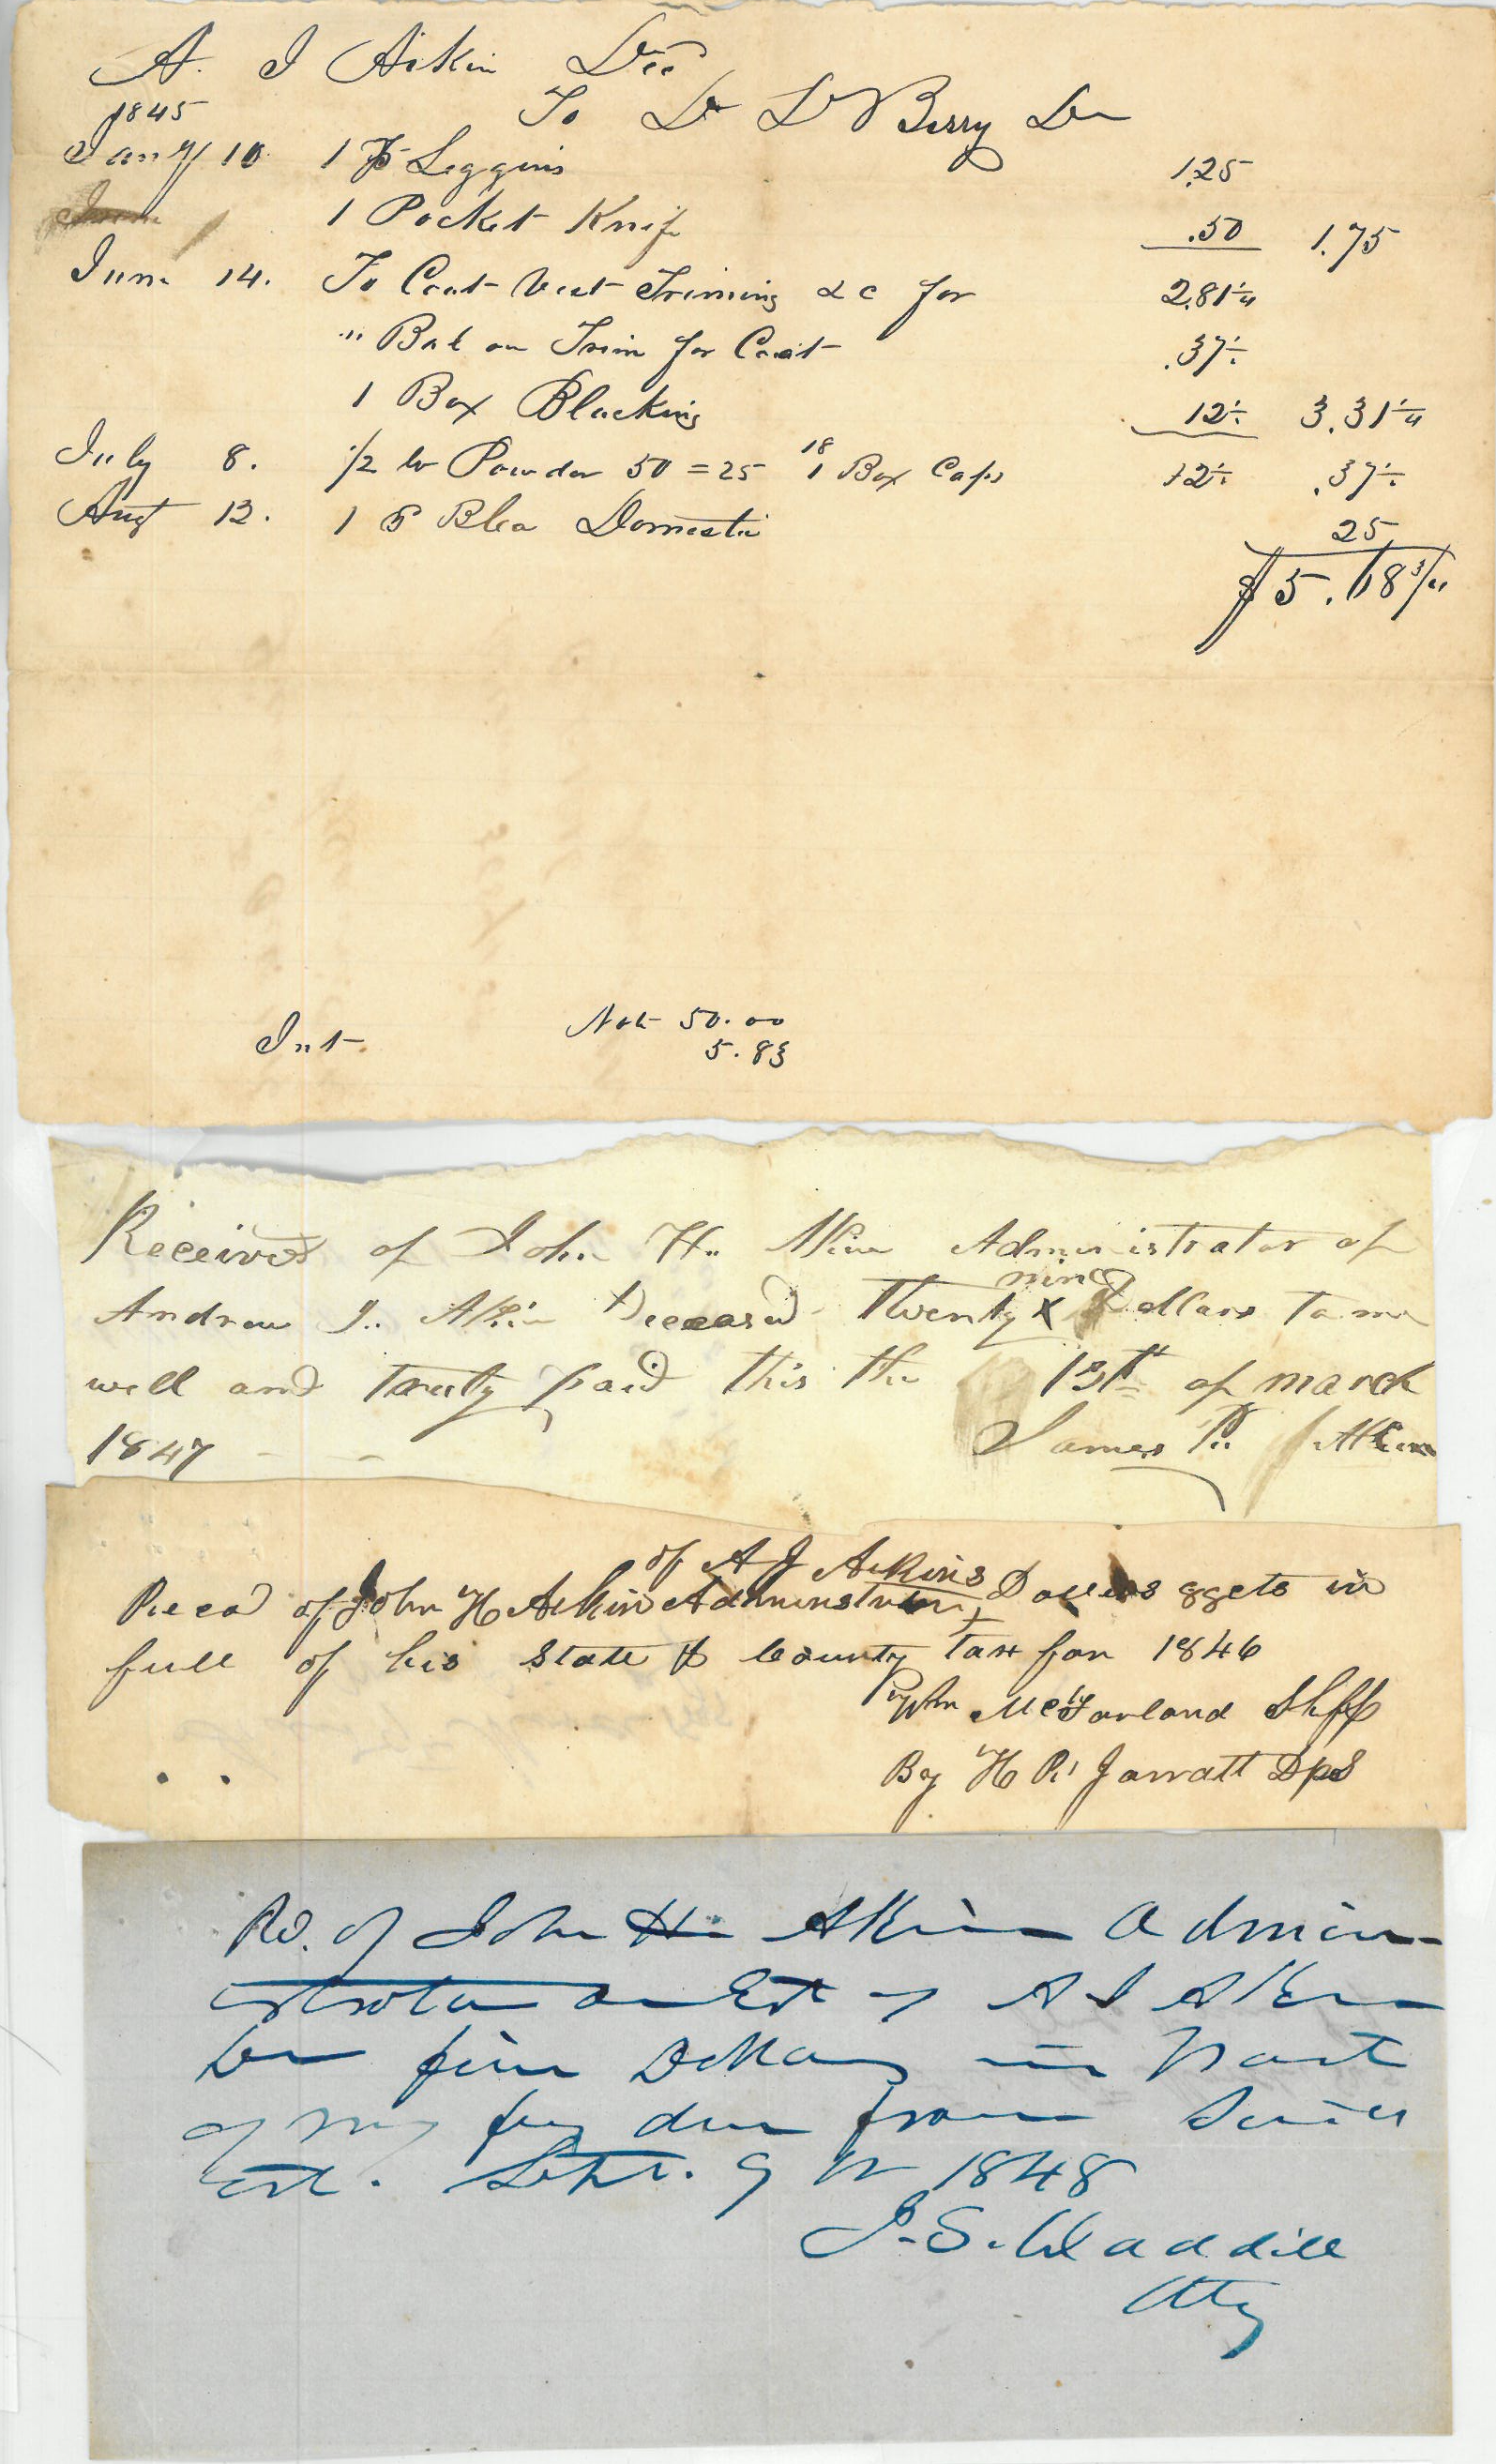 A. J Aikin Decd
To Dr L V Berry Dr
1845
Jany 10. 1 Pr Leggins 1.25
1 Pocket Knife .50 1.75
June 14. To Coat Vest Triming &c for 2.81¼
" Bal on Trim for Coat .37½
1 Box Blacking 12½ 3.31¼
July 8. ½ lb Powder 50 = 25 1 Box Caps 12½ .37½
Augt 12. 1 Blea Domestic 25
$5.18¾
Note 50.00
Int 5.83
Received of John H. Akin Administrator of
Andrew J. Akin Deceasd Twenty nine Dollars to me
well and truly paid this the 1st of march
1847
James R. Akin
of A J Aikins
Recd of John H Aikin Adminstrator, Dollars 99cts in
full of his State & County Tax for 1846
Wm McFarland Shff
By H R Jarratt Dps
Rd. of John H. Akin Admin-
istrator on Est of A J Akin
Dec five Dollars in part
of my fee due from said
est. Sept. 9th 1848
J. S. Waddill
Atty